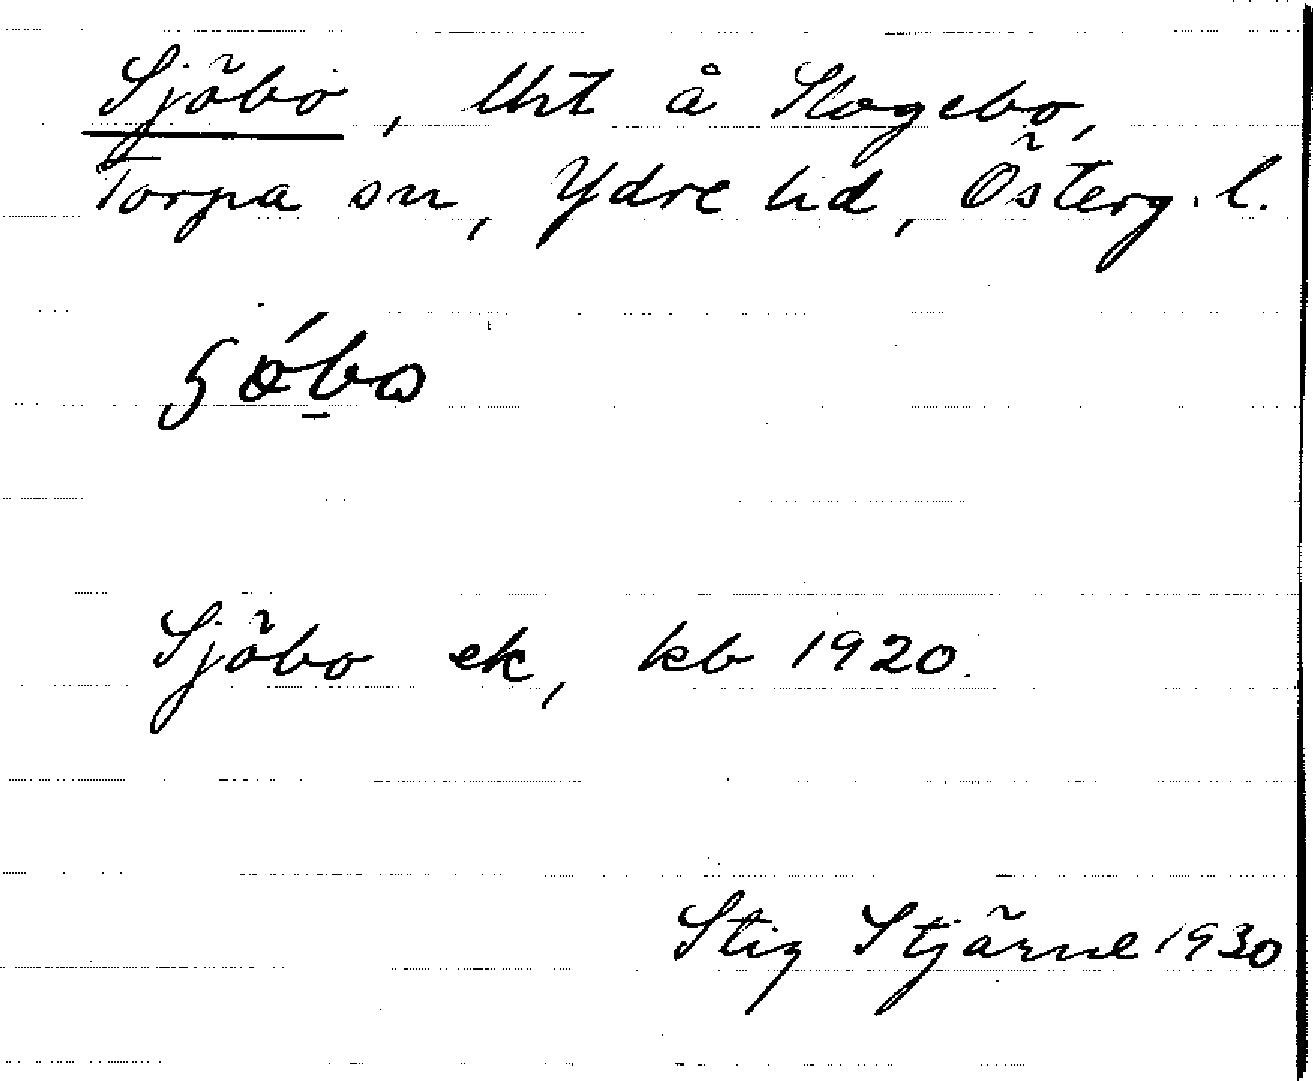 Sjöbo, lht å Slogebo,
Torpa sn, Ydre hd, Österg. l.
Sjöbo ek, kb 1920.
Stig Stjärne 1930